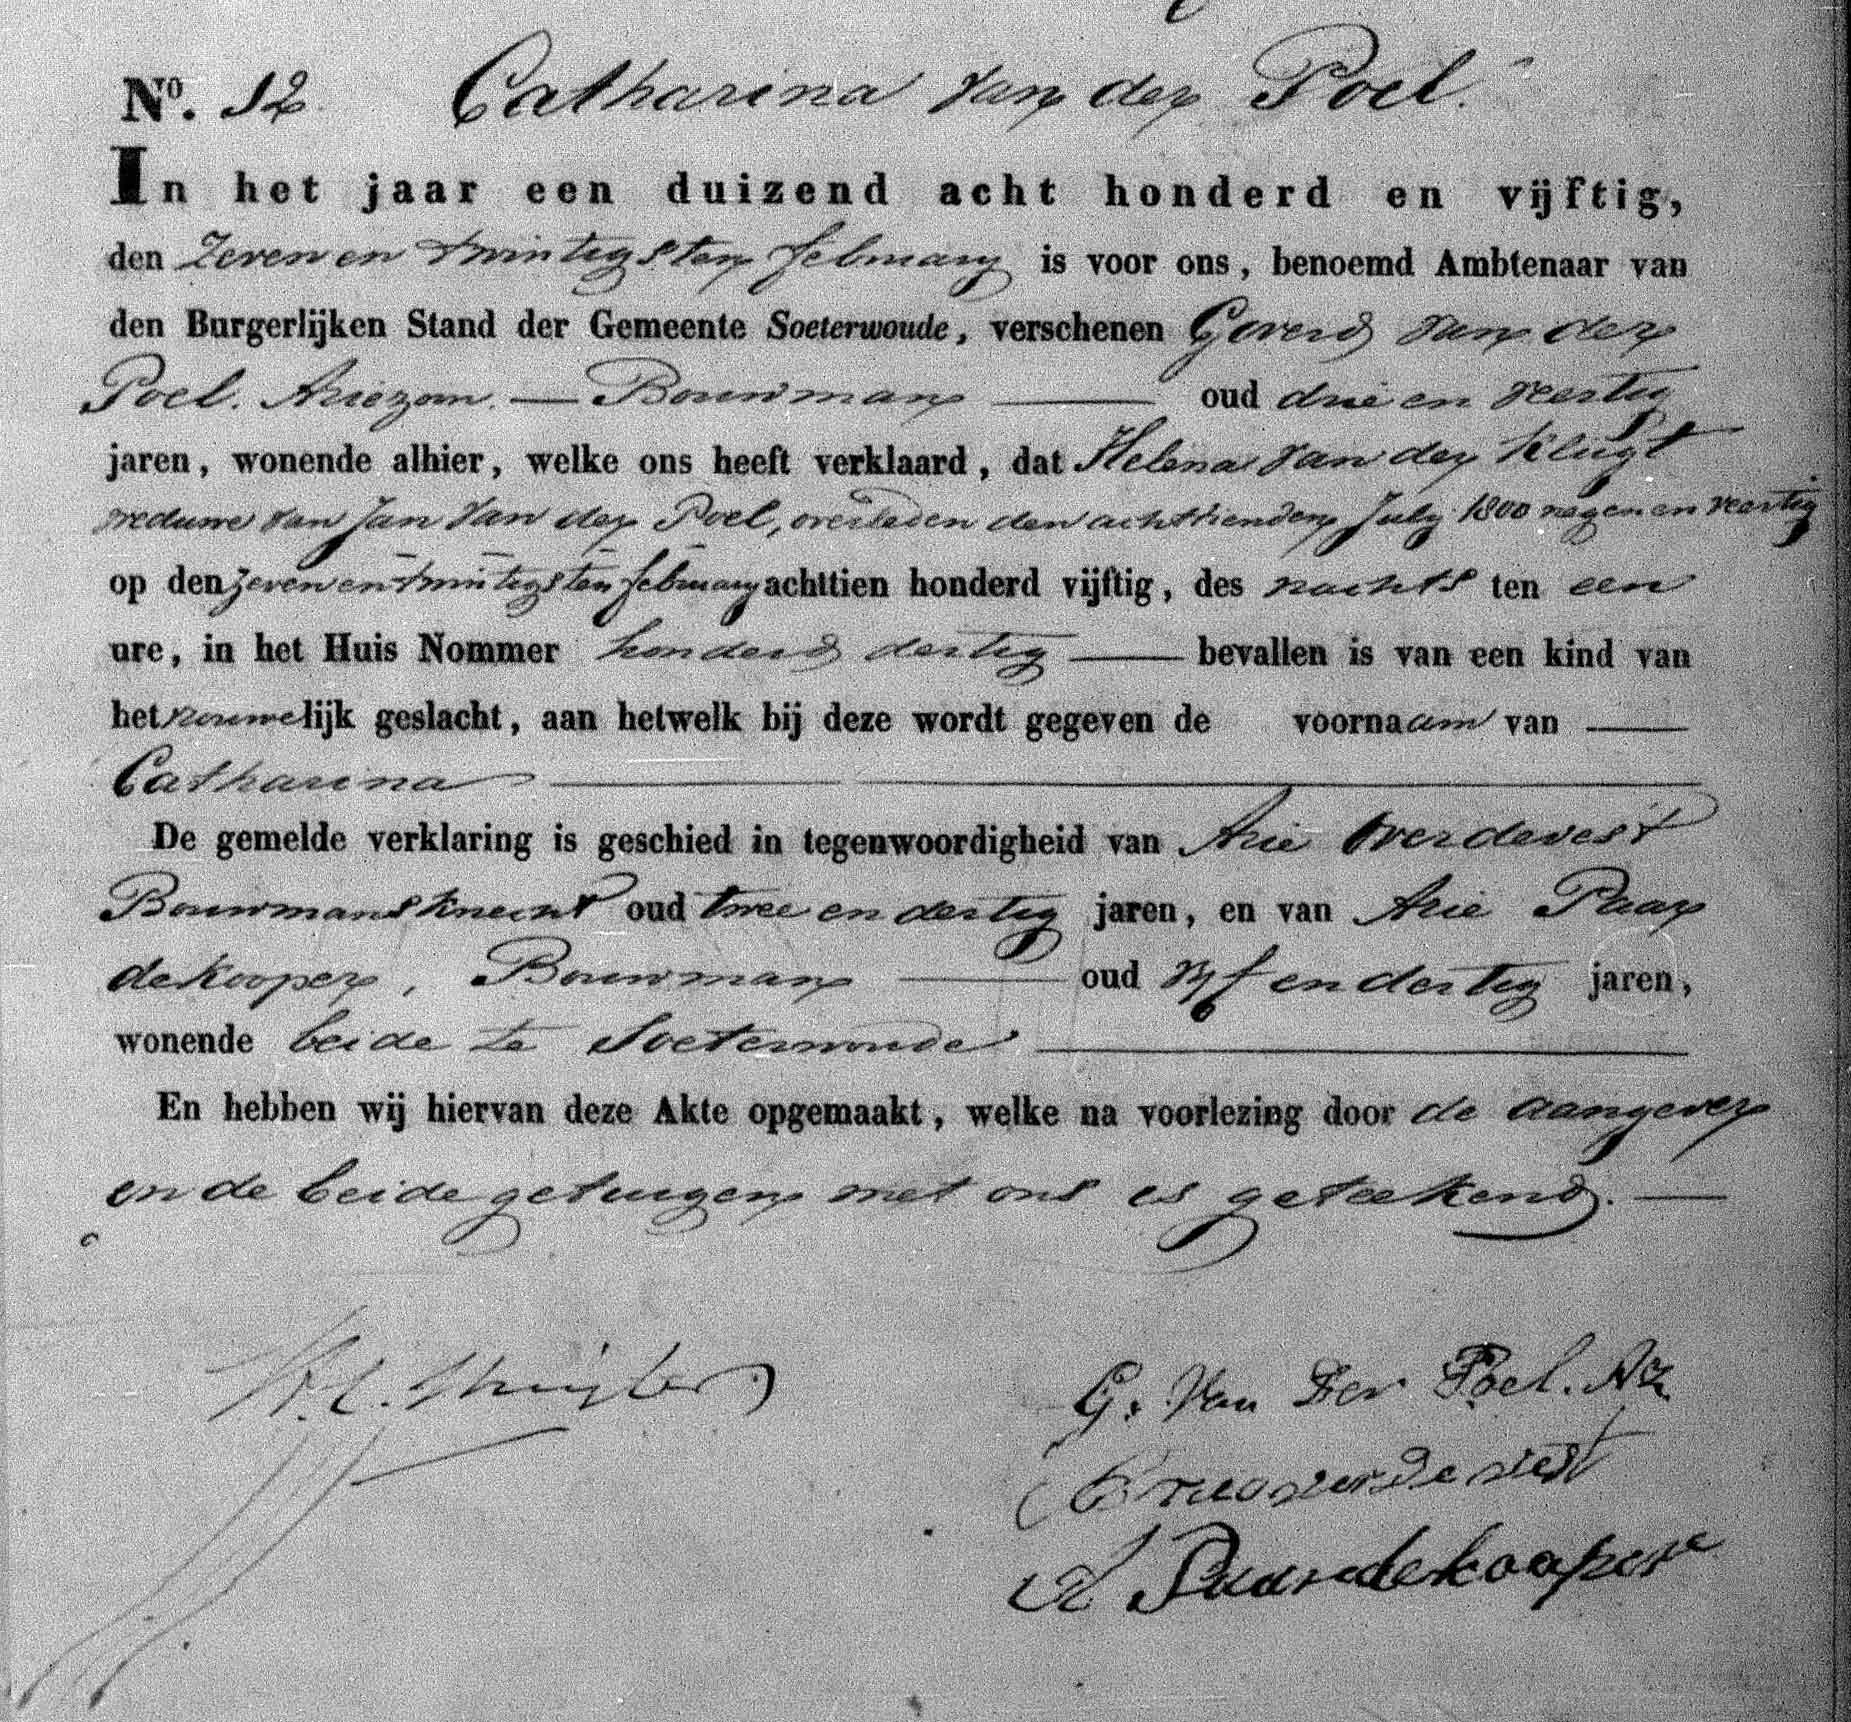 No. 12 Catharina van der Poel.
In het jaar een duizend acht honderd en vijftig,
den zeven en twintigsten february is voor ons, benoemd Ambtenaar van
den Burgerlijken Stand der Gemeente Soeterwoude, verschenen Goverd van der
Poel. Ariezoon. — Bouwman — oud drie en veertig
jaren, wonende alhier, welke ons heeft verklaard, dat Helena van der Klugt
weduwe van Jan van der Poel, overleden den achttienden July 1800 negen en veertig
op den zeven en twintigsten february achttien honderd vijftig, des nachts ten een
ure, in het Huis Nommer honderd dertig — bevallen is van een kind van
het vrouwelijk geslacht, aan hetwelk bij deze wordt gegeven de voornaam van —
Catharina —
De gemelde verklaring is geschied in tegenwoordigheid van Arie Overdevest
Bouwmansknecht oud twee en dertig jaren, en van Arie Paar
dekooper, Bouwman — oud vyf en dertig jaren,
wonende beide te Soeterwoude —
En hebben wij hiervan deze Akte opgemaakt, welke na voorlezing door de aangever
en de beide getuigen met ons is geteekend. —
G. Van Der Poel. Az
overdevest
A Paardekooper